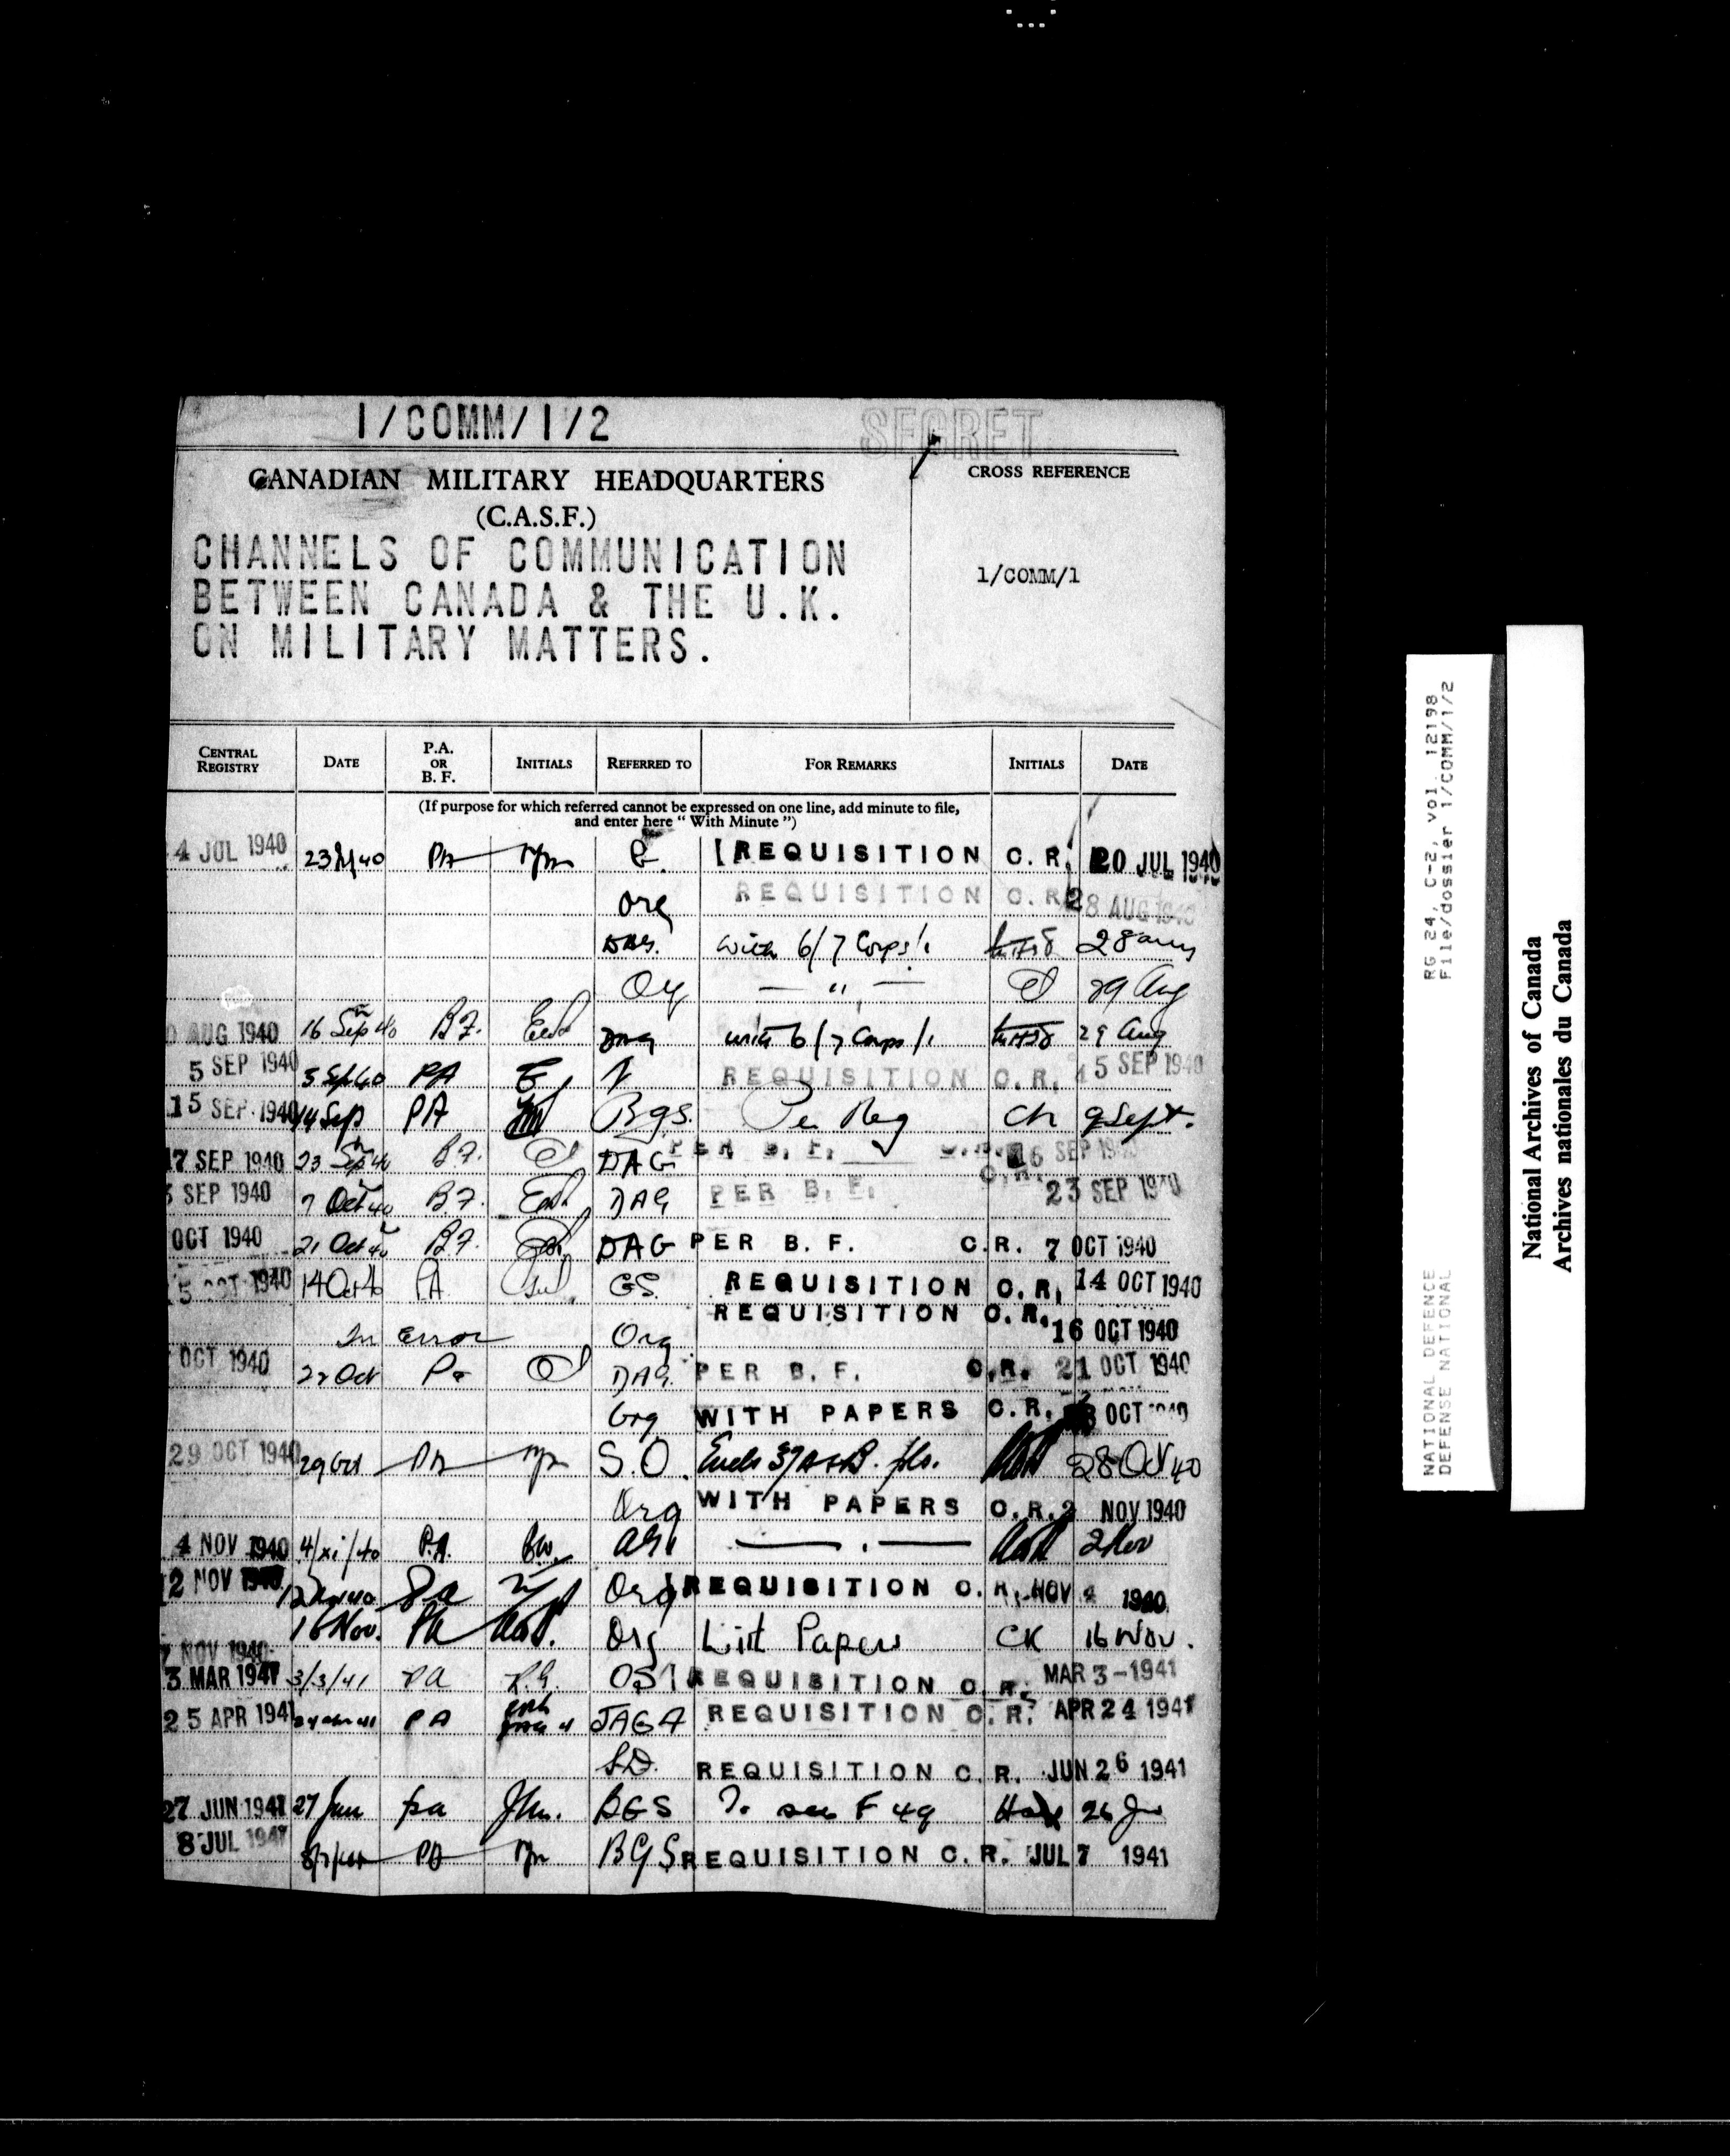 1/COMM/1/2
SECRET
CANADIAN MILITARY HEADQUARTERS
(C.A.S.F.)
CROSS REFERENCE
CHANNELS OF COMMUNICATION
BETWEEN CANADA & THE U.K.
ON MILITARY MATTERS.
1/COMM/1
CENTRAL REGISTRY DATE P.A. OR B. F. INITIALS REFERRED TO FOR REMARKS INITIALS DATE
(If purpose for which referred cannot be expressed on one line, add minute to file,
and enter here " With Minute ")
4 JUL 1940 PA REQUISITION C. R. 20 JUL 1940
Org REQUISITION C. R. 28 AUG 1940
with 6/7 Corps/1 28 Aug
Org — " — 29 Aug
AUG 1940 16 Sep 40 B.F. DAG with 6/7 Corps/1 29 Aug
5 SEP 1940 5 Sep 40 PA REQUISITION C. R. 5 SEP 1940
15 SEP 1940 14 Sep PA BGS. Per Reg CK 9 Sept.
17 SEP 1940 23 Sep 40 B.F. DAG PER B. F. C.R. 16 SEP 1940
SEP 1940 7 Oct 40 B.F. DAG PER B. F. C.R. 23 SEP 1940
OCT 1940 21 Oct 40 B.F. DAG PER B. F. C.R. 7 OCT 1940
5 OCT 1940 14 Oct 40 PA GS. REQUISITION C. R. 14 OCT 1940
In Error Org REQUISITION C. R. 16 OCT 1940
OCT 1940 22 Oct Pa DAG. PER B. F. C.R. 21 OCT 1940
Org WITH PAPERS C. R. OCT 1940
29 OCT 1940 29 Oct PA S.O. Encls 37A & B. 28 Oct 40
Org WITH PAPERS C.R. 2 NOV 1940
4 NOV 1940 4/xi/40 P.A. AG1 — . — 2 Nov
2 NOV 1940 12 Nov 40 Pa Org REQUISITION C. R. NOV 1940
NOV 1940 16 Nov. PA Org With Papers CK 16 Nov.
3 MAR 1941 3/3/41 PA R.G. REQUISITION C. R. MAR 3-1941
25 APR 1941 24 Apr 41 PA JAG REQUISITION C. R. APR 24 1941
S.D. REQUISITION C. R. JUN 26 1941
27 JUN 1941 27 Jun pa BGS To see F 49 26 Jun
8 JUL 1941 PA BGS REQUISITION C. R. JUL 7 1941
RG 24, C-2, vol. 12198
File/dossier 1/COMM/1/2
NATIONAL DEFENCE
DEFENSE NATIONAL
National Archives of Canada
Archives nationales du Canada